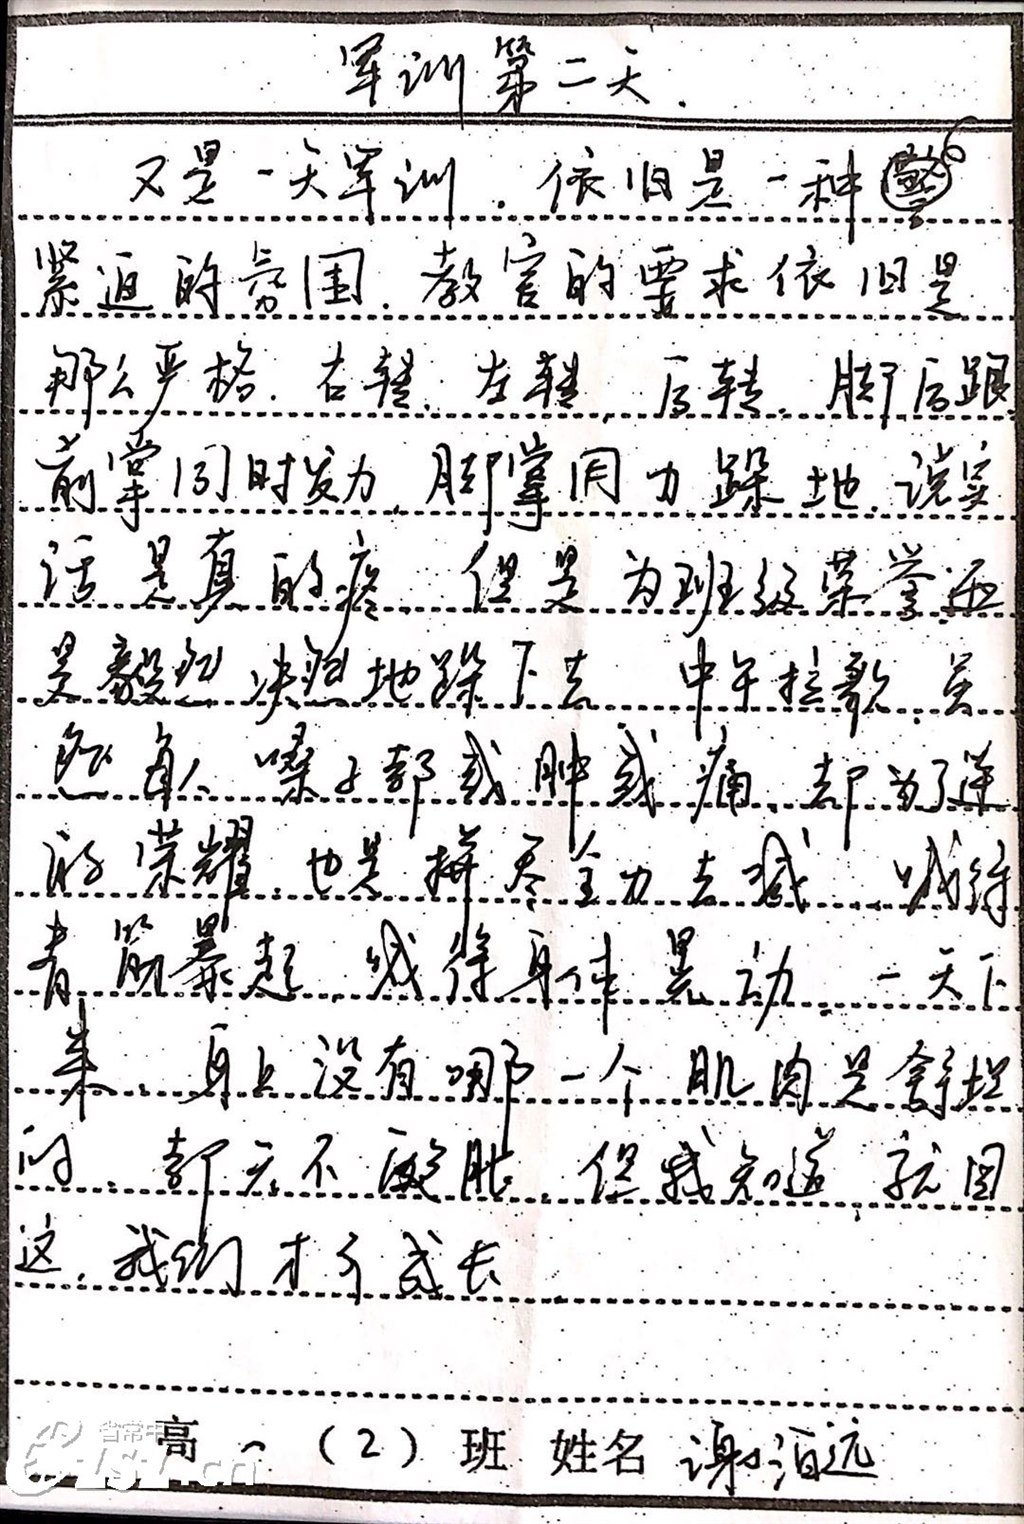 军训第二天.
又是一天军训.依旧是一种
紧迫的氛围.教官的要求依旧是
那么严格.右转.左转.后转.脚后跟
前掌同时发力,脚掌用力跺地.说实
话是真的疼.但是为班级荣誉还
是毅然决然地跺下去.中午拉歌.虽
然每人嗓子都或肿或痛.却为了连
的荣耀.也是拼尽全力去喊.喊得
青筋暴起.喊得身体晃动.一天下
来.身上没有哪一个肌肉是舒坦
的.都无不酸胀.但我知道就因
这.我们才予成长
高一(2)班 姓名 谢泊远
省常中